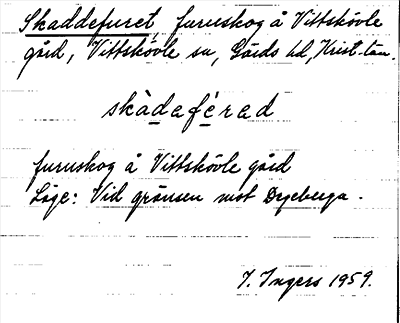 Skaddefuret, furuskog å Vittskövle
gård, Vittskövle sn, Gärds hd, Krist. län.
skàdaférad
furuskog å Vittskövle gård
Läge: Vid gränsen mot Degeberga.
I. Ingers 1959.